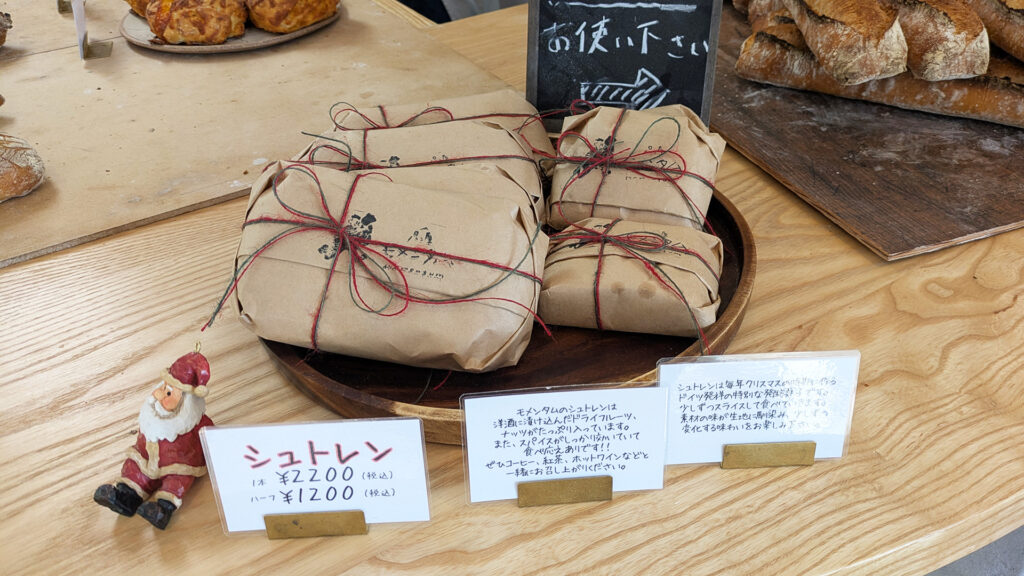 お使い下さい
シュトレン
1本 ¥2200 (税込)
ハーフ ¥1200 (税込)
モメンタムのシュトレンは
洋酒に漬け込んだドライフルーツ、
ナッツがたっぷり入っています。
また、スパイスがしっかり効いていて
食べ応えありです!!
ぜひコーヒー、紅茶、ホットワインなどと
一緒にお召し上がりください。
シュトレンは毎年クリスマスの時期に作る
ドイツ発祥の特別な発酵菓子です。
少しずつスライスして食べていきます。
素材の味が生地に馴染み、少しずつ
変化する味わいをお楽しみ下さい。